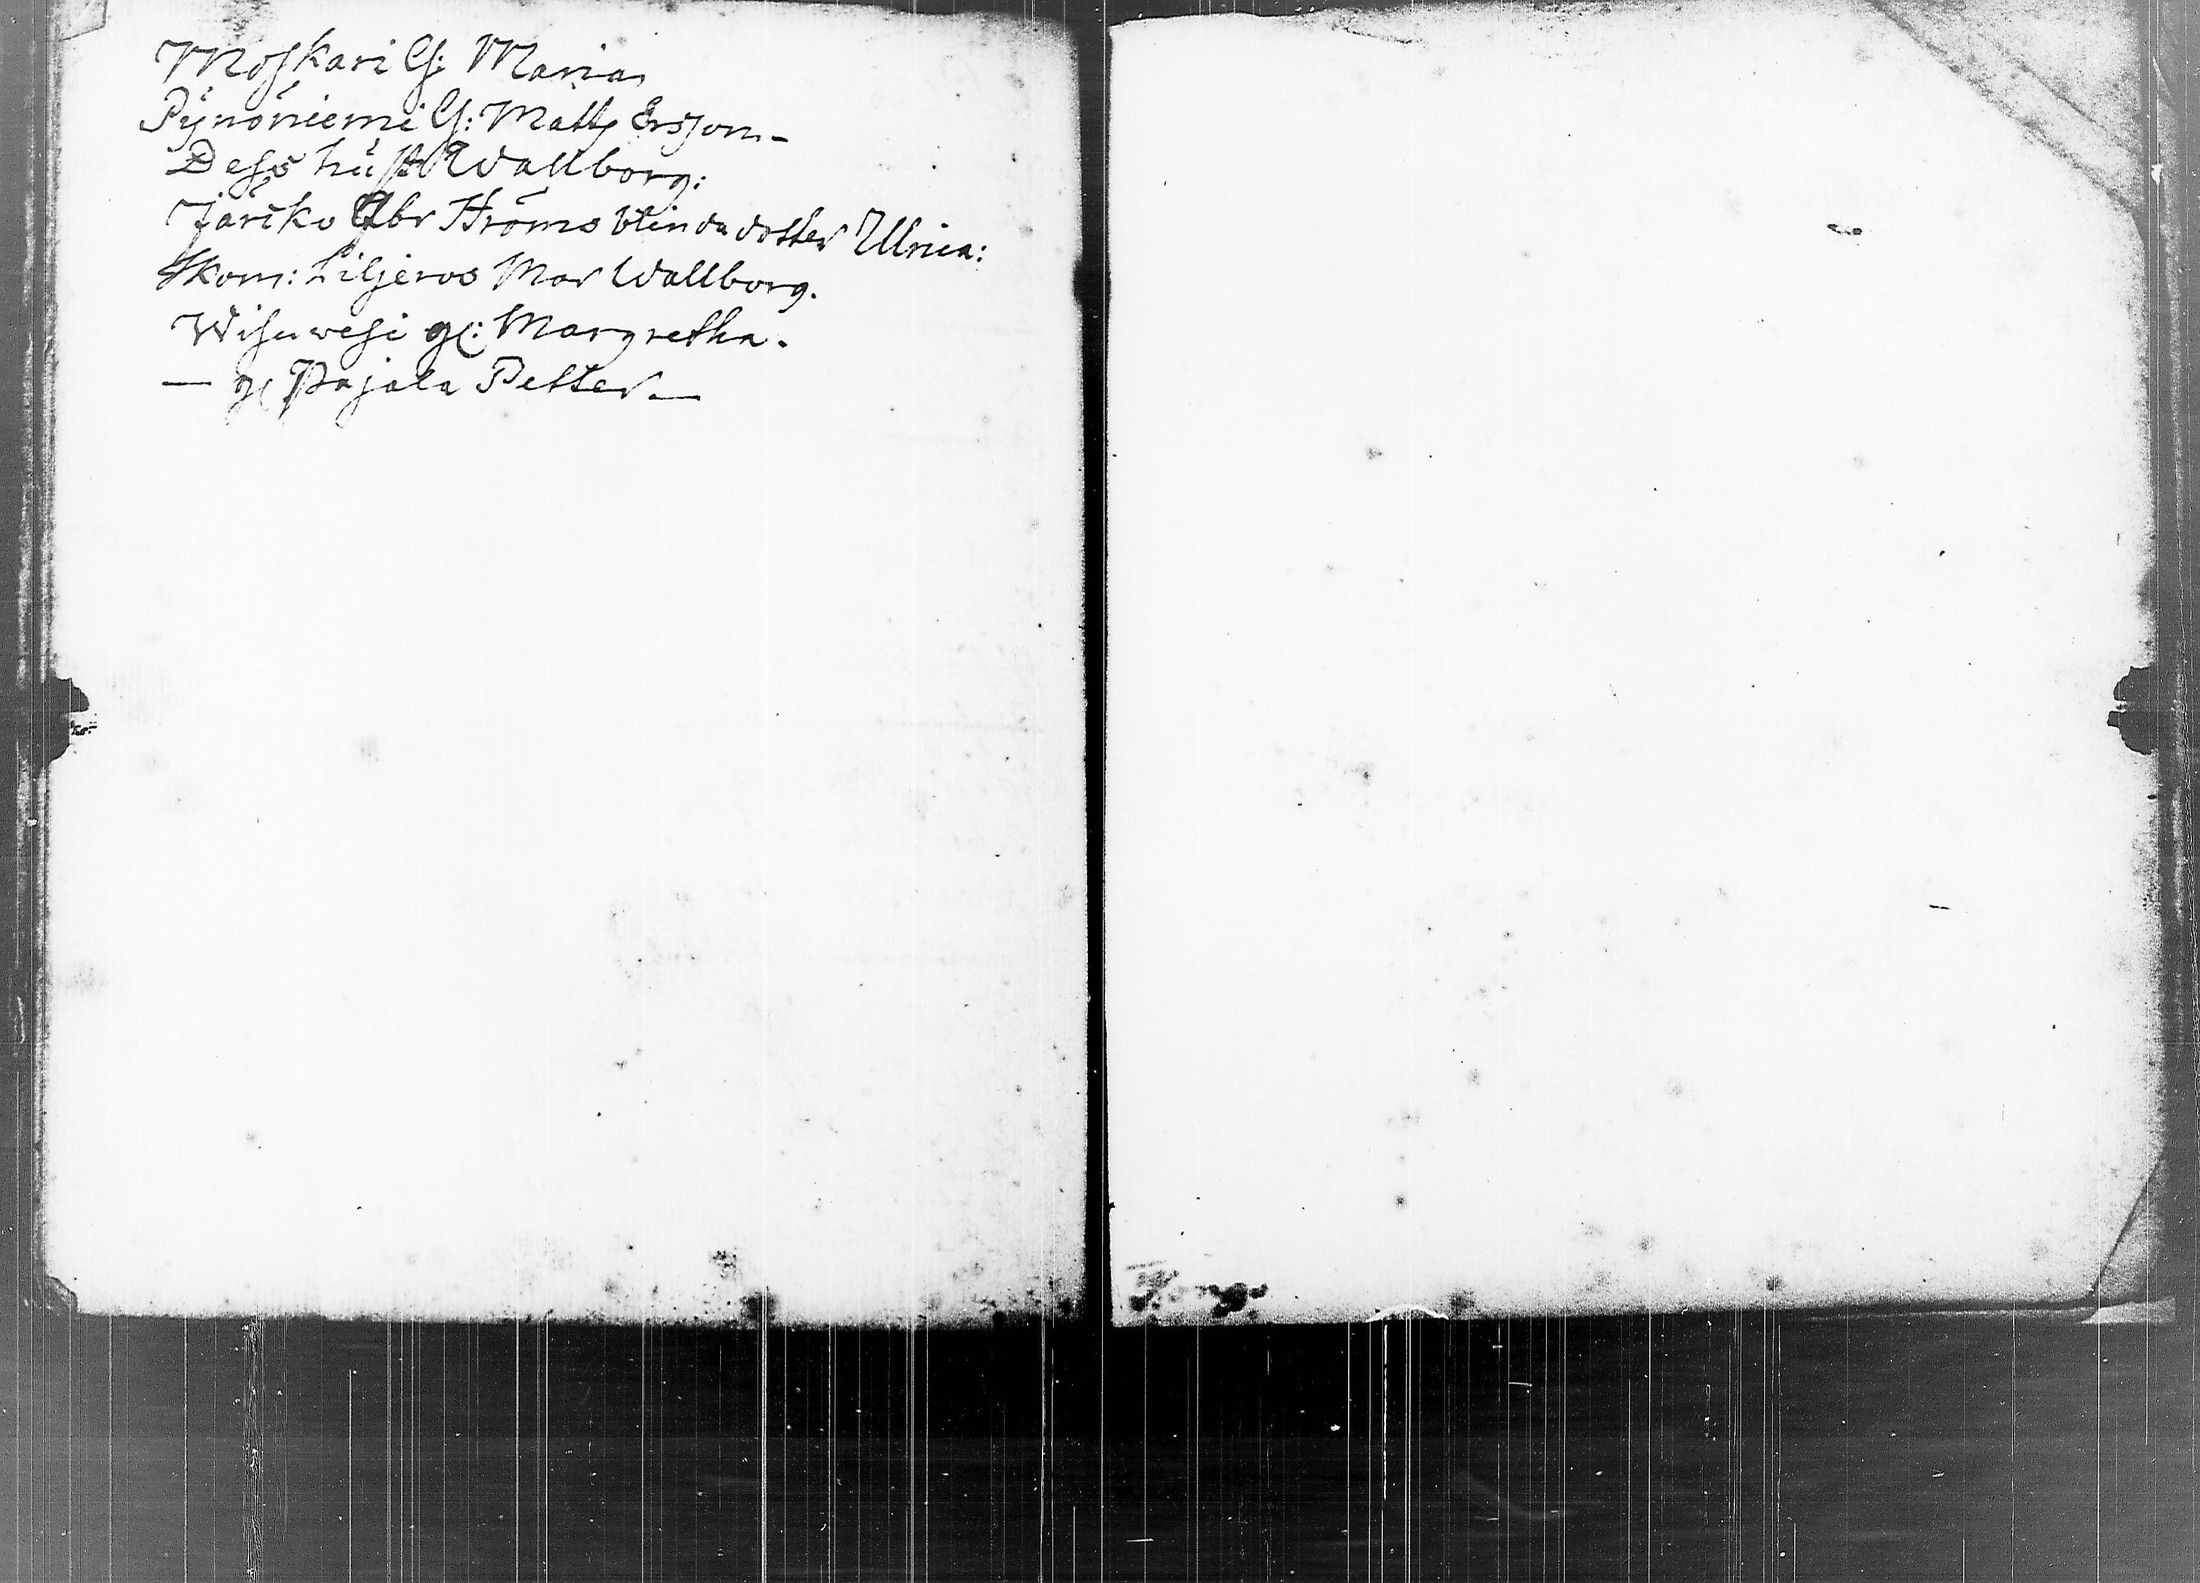 Moskari G: Maria
Pynöniemi G: Matts Ersson –
Dess hust Wallborg:
Järiko Abr Ströms blinda dotter Ulrica:
Skom: Liljeros Mor Wallborg.
Wisuwesi gl: Margretha.
— gl Pajala Petter. —